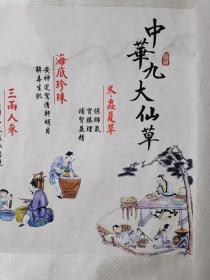 中華九大仙草
冬蟲夏草
保肺氣
實腠理
補腎益精
海底珍珠
安神定驚清肝明目
解毒生肌
三兩人參